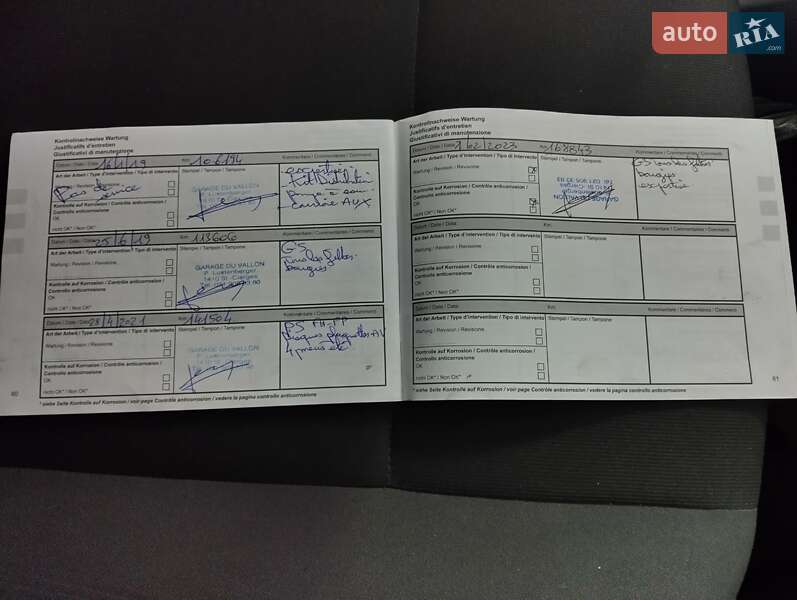 auto RIA.com
Kontrollnachweise Wartung
Justificatifs d'entretien
Giustificativi di manutenzione
Datum / Date / Data: 16/1/19 Km: 106194 Kommentare / Commentaires / Commenti
Art der Arbeit / Type d'intervention / Tipo di intervento Stempel / Tampon / Timbro
Wartung / Révision / Revisione
Pas de
GARAGE DU VALLON
Kontrolle auf Korrosion / Contrôle anticorrosion /
Controllo anticorrosione
Kit Distribution
courroie AUX
OK
nicht OK* / Non OK*
Datum / Date / Data: 25/6/19 Km: 113606 Kommentare / Commentaires / Comment.
Art der Arbeit / Type d'intervention / Tipo di intervento Stempel / Tampon / Timbro
GS
Wartung / Révision / Revisione
GARAGE DU VALLON
P. Lustenberger
1410 St-Cierges
bougies
Kontrolle auf Korrosion / Contrôle anticorrosion /
Controllo anticorrosione
OK
nicht OK* / Non OK*
Datum / Date / Data: 28/4/2021 Km: 141504 Kommentare / Commentaires / Comment.
Art der Arbeit / Type d'intervention / Tipo di intervento Stempel / Tampon / Timbro
Wartung / Révision / Revisione
GARAGE DU VALLON
P. Lustenberger
disques plaquettes AV
4 pneus été
Kontrolle auf Korrosion / Contrôle anticorrosion /
Controllo anticorrosione
OK
nicht OK* / Non OK*
60
* siehe Seite Kontrolle auf Korrosion / voir page Contrôle anticorrosion / vedere la pagina controllo anticorrosione
Kontrollnachweise Wartung
Justificatifs d'entretien
Giustificativi di manutenzione
Datum / Date / Data: /02/2023 Km: 168843 Kommentare / Commentaires / Comment.
Art der Arbeit / Type d'intervention / Tipo di intervento Stempel / Tampon / Timbro
GS
Wartung / Révision / Revisione
bougies
Kontrolle auf Korrosion / Contrôle anticorrosion /
Controllo anticorrosione
GARAGE DU VALLON
P. Lustenberger
1410 St-Cierges
OK
nicht OK* / Non OK*
Datum / Date / Data: Km: Kommentare / Commentaires / Comment.
Art der Arbeit / Type d'intervention / Tipo di intervento Stempel / Tampon / Timbro
Wartung / Révision / Revisione
Kontrolle auf Korrosion / Contrôle anticorrosion /
Controllo anticorrosione
OK
nicht OK* / Non OK*
Datum / Date / Data: Km: Kommentare / Commentaires / Comment.
Art der Arbeit / Type d'intervention / Tipo di intervento Stempel / Tampon / Timbro
Wartung / Révision / Revisione
Kontrolle auf Korrosion / Contrôle anticorrosion /
Controllo anticorrosione
OK
nicht OK* / Non OK*
61
* siehe Seite Kontrolle auf Korrosion / voir page Contrôle anticorrosion / vedere la pagina controllo anticorrosione